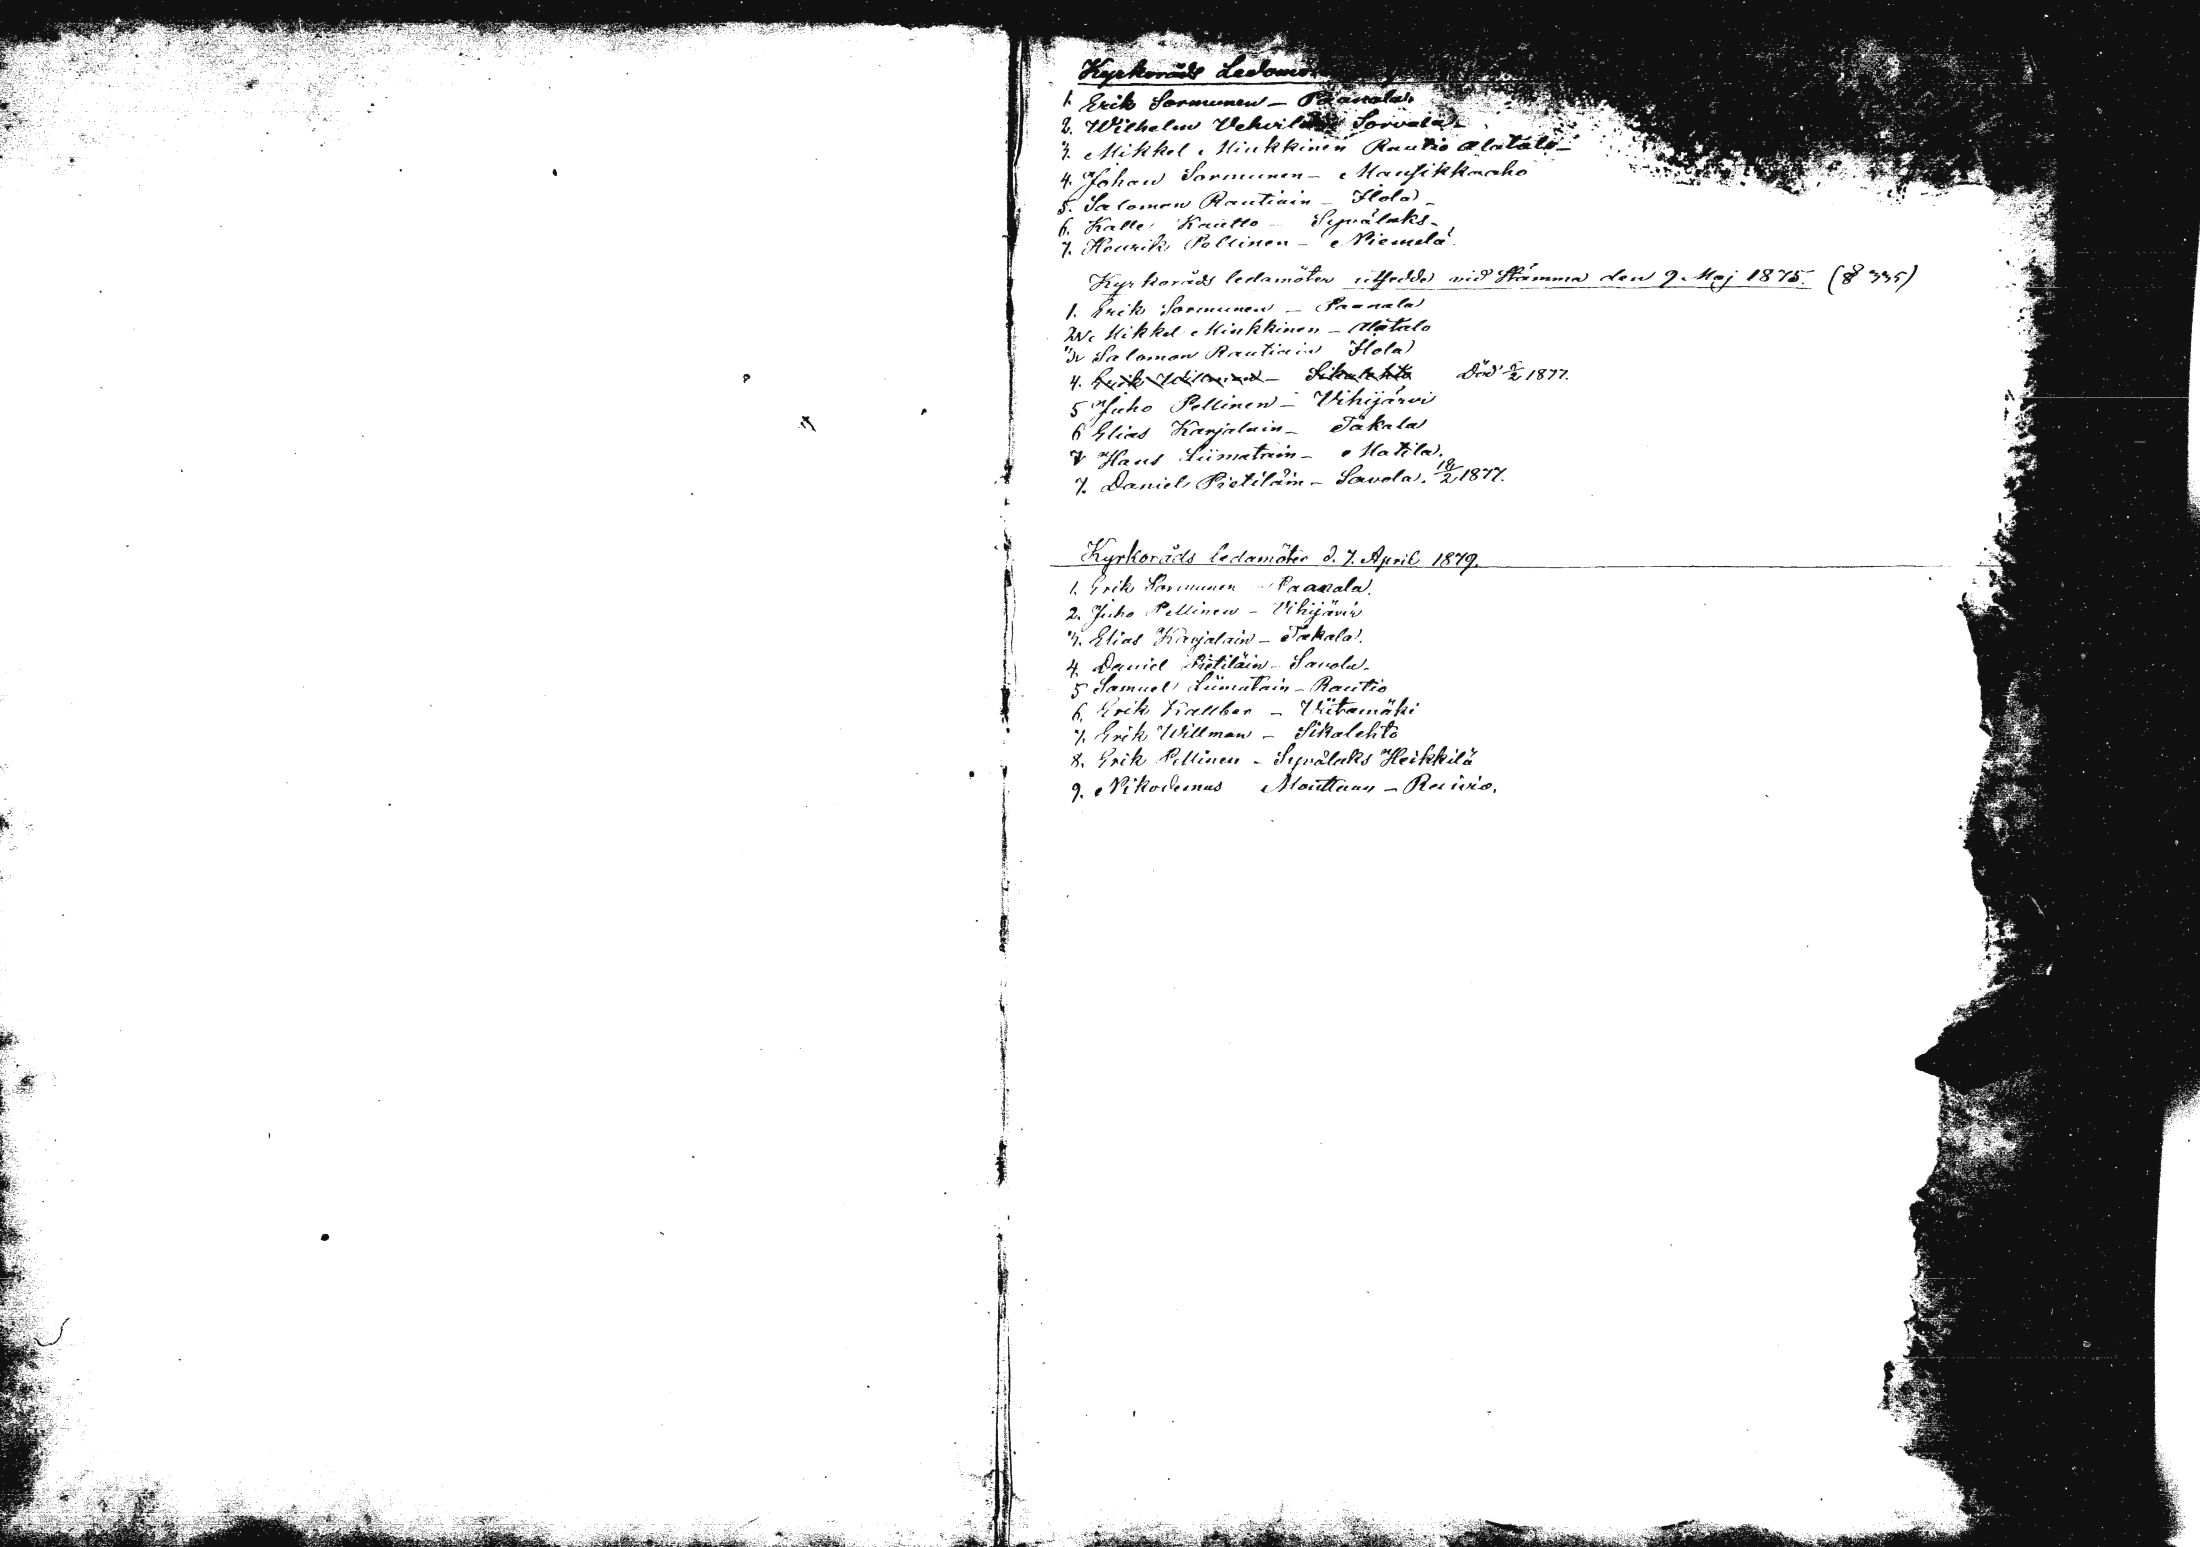 Kyrkoråds Ledamö
1. Erik Sormunen – Paanala.
2. Wilhelm Vehvil Sorvala –
3. Mikkel Minkkinen Rautio Alatalo –
4. Johan Sormunen – Mansikkaaho
5. Salomon Rautiain – Ilola –
6. Kalle Kautto – Syvälaks –
7. Henrik Pellinen – Niemelä.
Kyrkoråds ledamöter utsedde vid Stämma den 9. Maj 1875. (§ 335)
1. Erik Sormunen – Paanala
2. Mikkel Minkkinen – Alatalo
3. Salomon Rautiain Ilola
4. Erik Willman – Sikalehto Död 1877.
5 Juho Pellinen – Vihijärvi
6 Elias Karjalain – Takala
7 Hans Liimatain – Matila.
7. Daniel Pietiläin – Savola. 18/2 1877.
Kyrkoråds ledamöter d. 7. April 1879.
1. Erik Sormunen – Paanala.
2. Juho Pellinen – Vihijärvi
3. Elias Karjalain – Takala.
4. Daniel Pietiläin – Savola.
5 Samuel Liimatain – Rautio
6. Erik – Viitamäki
7. Erik Willman – Sikalehto
8. Erik Pellinen – Syvälaks Heikkilä
9. Nikodemus – Raivio.